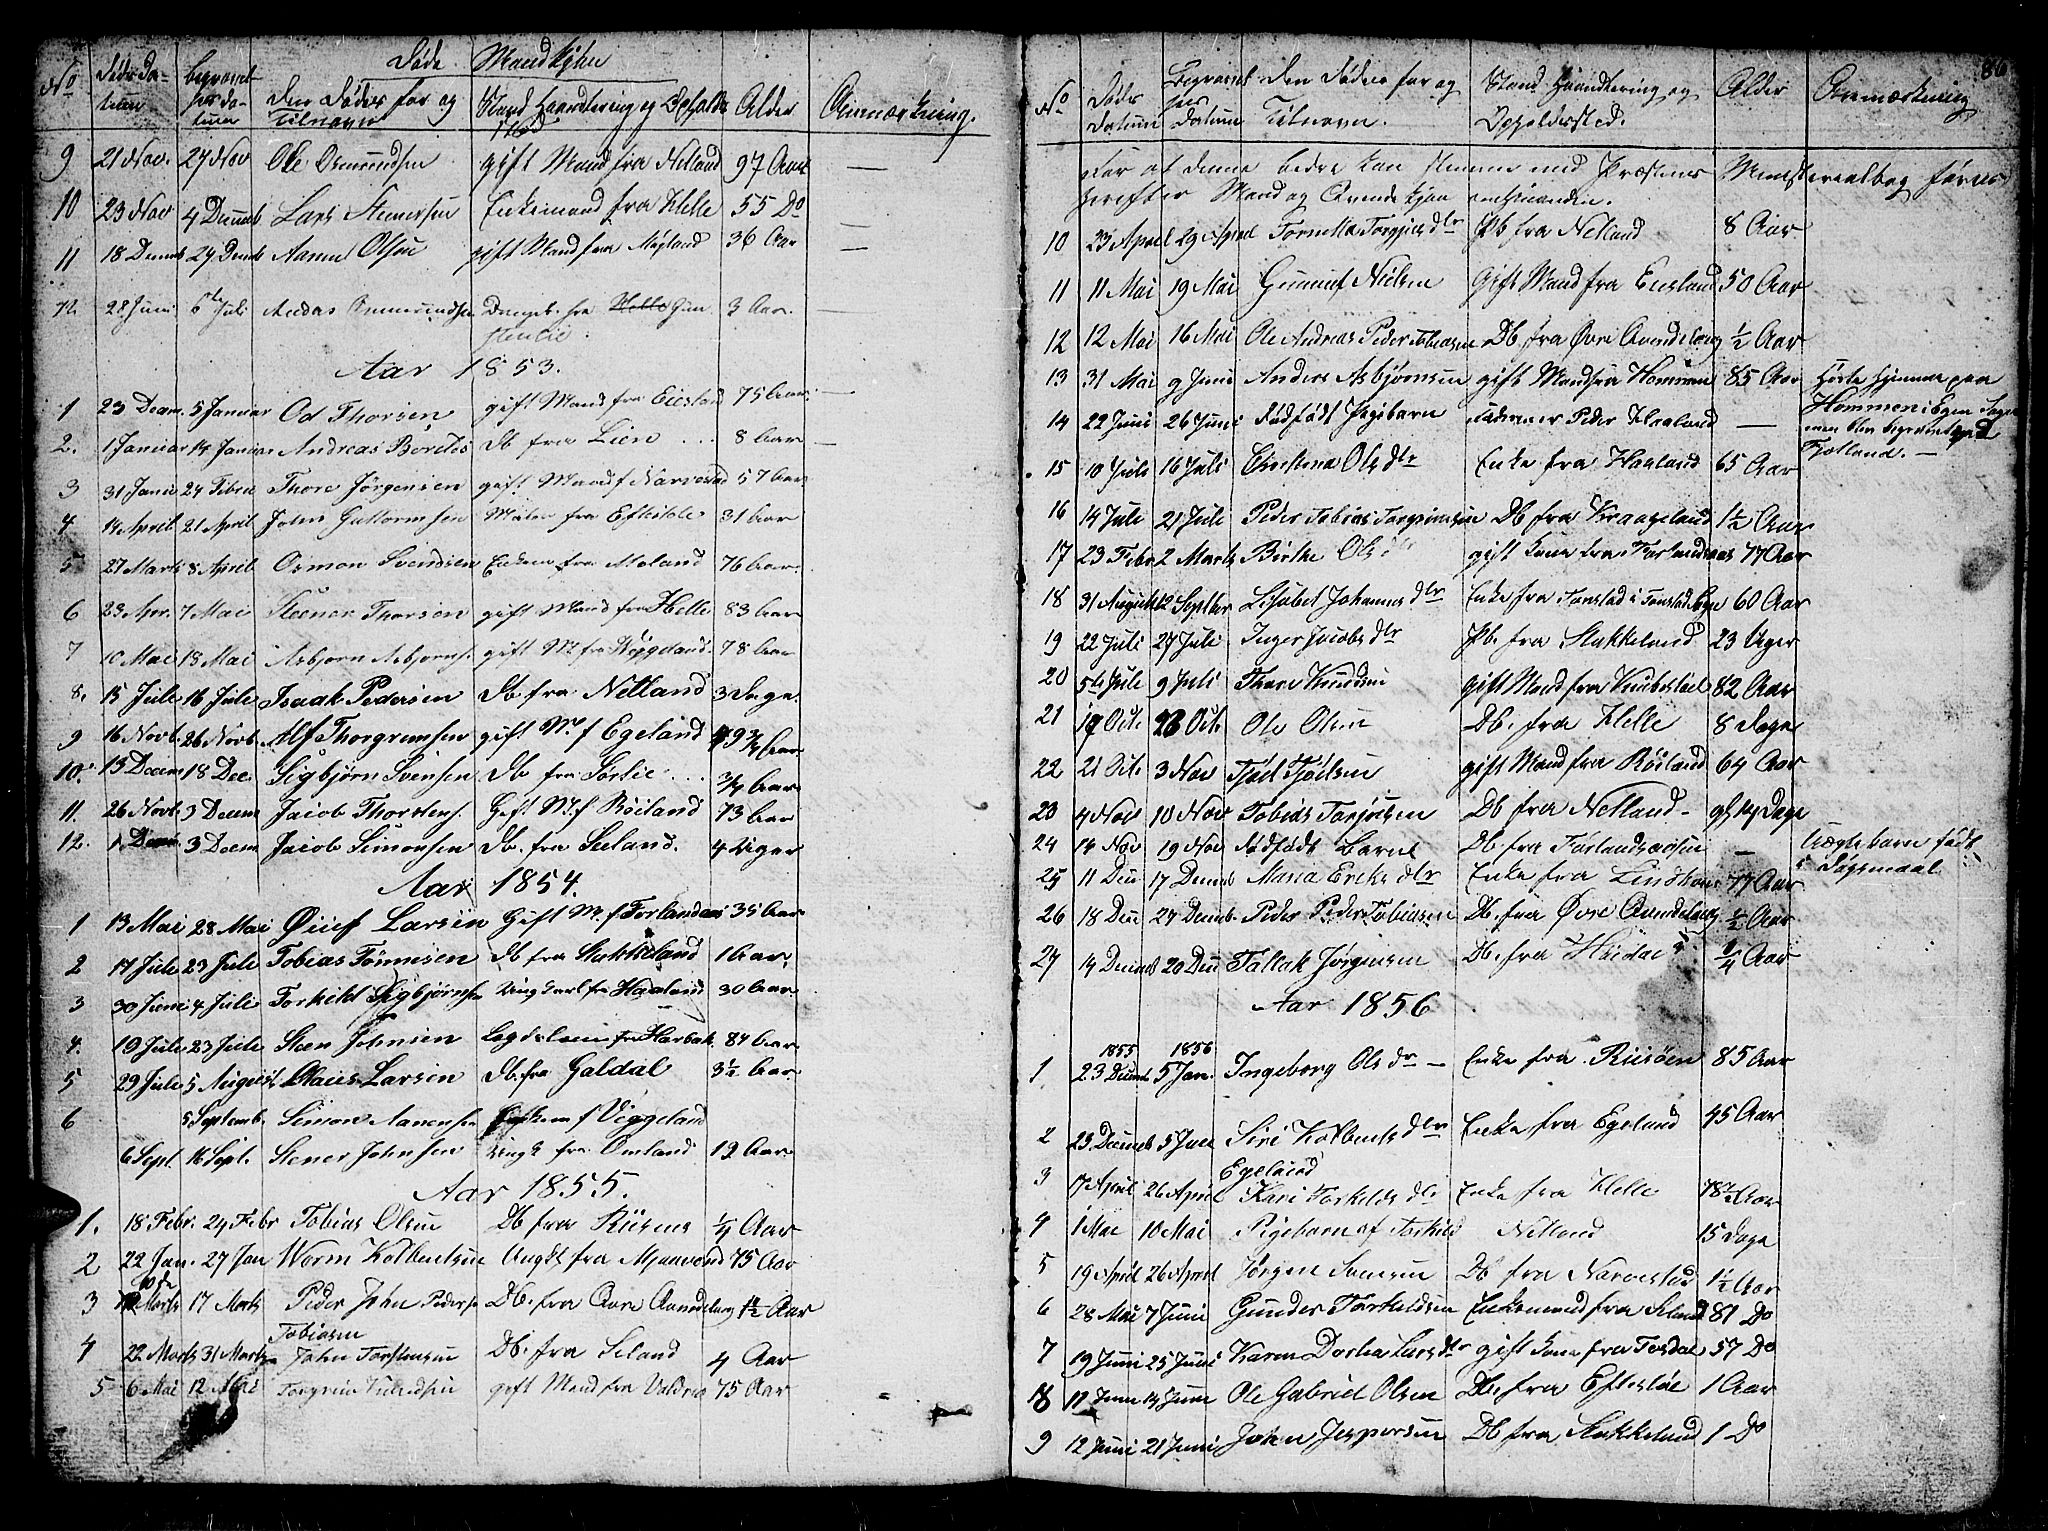 Døde Mandkjøn
No Døds Datum Begravelses Datum Den Dødes For og Tilnavn Stand Haandtering og Opholdssted Alder Anmærkning.
9 21 Nov. 27 Nov Ole Osmundsen gift Mand fra Netland 97 Aar —
10 23 Nov 4 Decemb Lars Stenersen Enkemand fra Helle 55 Do —
11 18 Decemb 29 Decemb Aanen Olsen gift Mand fra Møgland 36 Aar —
12 28 Juni 6te Juli Andas Ommundsen Drengeb. fra 3 Aar. —
Aar 1853.
1 23 Decem. 5 Januar Od Thorsen gift Mand fra Eiesland 75 Aar. —
2. 1 Januar 14 Januar Andreas Db fra Lien ... 8 Aar —
3 31 Janu 24 Febru Thore Jörgensen gift Mand f Narvestad 57 Aar
4 14 April 21 April John Guttormsen fra Eftestøl 31 Aar
5 27 Marts 8 April Osmon Svendsen Enkem fra Moland 76 Aar.
6 23 Apr. 7 Mai Steener Thorsen gift Mand fra Helle 83 Aar
7 10 Mai 18 Mai Asbjørn Asbjørns. gift M. fra Viggeland. 78 Aar
8. 15 Jule 16 Jule Isaak Pedersen Db fra Netland 3 Dage.
9 16 Novb. 26 Novb. Alf Thorgremsen gift M. f Egeland 49 3/4 Aar
10. 13 Decem 18 Dec. Sigbjørn Svensen Db fra Sørlie ... 3/4 Aar
11. 26 Novb. 3 Decem Jacob Thorstens. Gift M. f Røiland 73 Aar
12. 1 Decem 3 Decem Jacob Simonsen Db. fra Seeland. 4 Uger
Aar 1854.
1 13 Mai 28 Mai Larsen Gift M. f Forlandsaas 35 Aar
2 17 Jule 23 Jule Tobias Tönnesen Db fra Stakkeland 1 Aar.
3 30 Juni 4 Jule Torkild Sigbjørnsen Ungkarl fra Haaland 30 Aar.
4. 19 Jule 23 Jule Steen Johnsen Lægdslem fra Harbak. 84 Aar.
5 29 Jule 5 August Claies Larsen Db. fra Galdal 3 1/2 Aar.
6 5 Septemb. Simon Aanensen Enkem f Viggeland
6 Sept. 16 Sept. Stener Johnsen Ungk fra Omland 19 Aar.
Aar 1855.
1. 18 Febr. 24 Febr Tobias Olsen Db fra Risøens 1/4 Aar
2 22 Jan. 27 Jan Worm Kolbentsen Ungk fra Mjaavand 75 Aar
3 10de Marts 17 Marts Peder John Peder Tobiasen Db. fra Øvre Qvindelaug 1 1/2 Aar
4 22 Marts 31 Marts John Torstensen Db. fra Seland 4 Aar
5 6 Mai 12 Mai Torgrim Knudsen gift Mand fra 75 Aar
86
No Døds Datum Begravelses Datum Den Dødes For og Tilnavn. Stand Haandtering og Opholdssted. Alder Anmærkning
For at denne bedre kan stemme med Præstens Ministerialbog føres
herefter Mand og Qvindekjøn
10 23 April 29 April Torgjus dtr Pb fra Netland 8 Aar
11 11 Mai 19 Mai Gunuf Nielsen Gift Mand fra Eiesland 50 Aar
12 12 Mai 16 Mai Ole Andreas Peder Tobiasen Db fra Øvre Qvindelaug 1/2 Aar
13 31 Mai 9 Juni Anders Asbjørnsen gift Mand fra Hommen 85 Aar Hørte hjemme paa
Hommen i Egen Sogn
men blev begravet ved
Fjotland. —
14 22 Juni 26 Juni Dødfødt Pigebarn Peder Haaland —
15 10 Juli 16 Juli Christina Ols dtr Enke fra Haaland 65 Aar
16 14 Juli 21 Juli Peder Tobias Torgrimsen Db fra Kraageland 1 1/2 Aar
17 23 Febr 2 Marts Birthe Ols dtr gift Kone fra Forlandsaas 77 Aar
18 31 August 12 Septbr Lisabet Johannes dtr Enke fra Tonstad i Tonstad Sogn 60 Aar
19 22 Juli 27 Juli Inger Jacobs dtr Pb. fra Stakkeland 23 Uger
20 5te Juli 9 Juli Thore Knudsen gift Mand fra Knibestøl 82 Aar
21 19 Oct. 28 Oct. Ole Olsen Db. fra Helle 8 Dage
22 21 Oct. 3 Nov Tjøel Tjøelsen gift Mand fra Røiland 64 Aar
23 4 Nov 10 Nov Tobias Torjusen Db fra Netland - Dage
24 14 Nov 19 Nov Dødfødt Barn Db fra Forlandsaasen — Uægte barn født
i Døgsmaal
25 11 Dec 17 Decemb Maria Eriks dtr Enke fra 77 Aar
26 18 Dec 27 Decemb. Peder Peder Tobiasen Db. fra Øvre Qvindelaug 1/2 Aar
27 14 Decemb 20 Dec Tallak Jørgensen Db. fra 1/4 Aar
Aar 1856
1. 1855 23 Decemb 1856 5 Jan. Ingeborg Ols dr — Enke fra Risøen 85 Aar
2 23 Decemb 5 Jan Siri Kolbents dtr Egeland Enke fra Egeland 45 Aar
3 17 April 26 April Kari Torkilds dtr Enke fra Helle 78 1/2 Aar
4 1 Mai 10 Mai Pigebarn af Torkild Netland 15 Dage
5 19 April 26 April Jørgen Db fra Narvestad 1 1/2 Aar
6 28 Mai 7 Juni Gunder Torkildsen Enkemand fra Seland 81 Do
7 19 Juni 25 Juni Karen Dorthea Lars dtr gift Kone fra Fosdal 57 Do
8 11 Juni 14 Juni Ole Gabriel Olsen Db. fra Eftestøl 1 Aar
9 12 Juni 21 Juni Johan Jespersen Db fra Stakkeland 1 Do